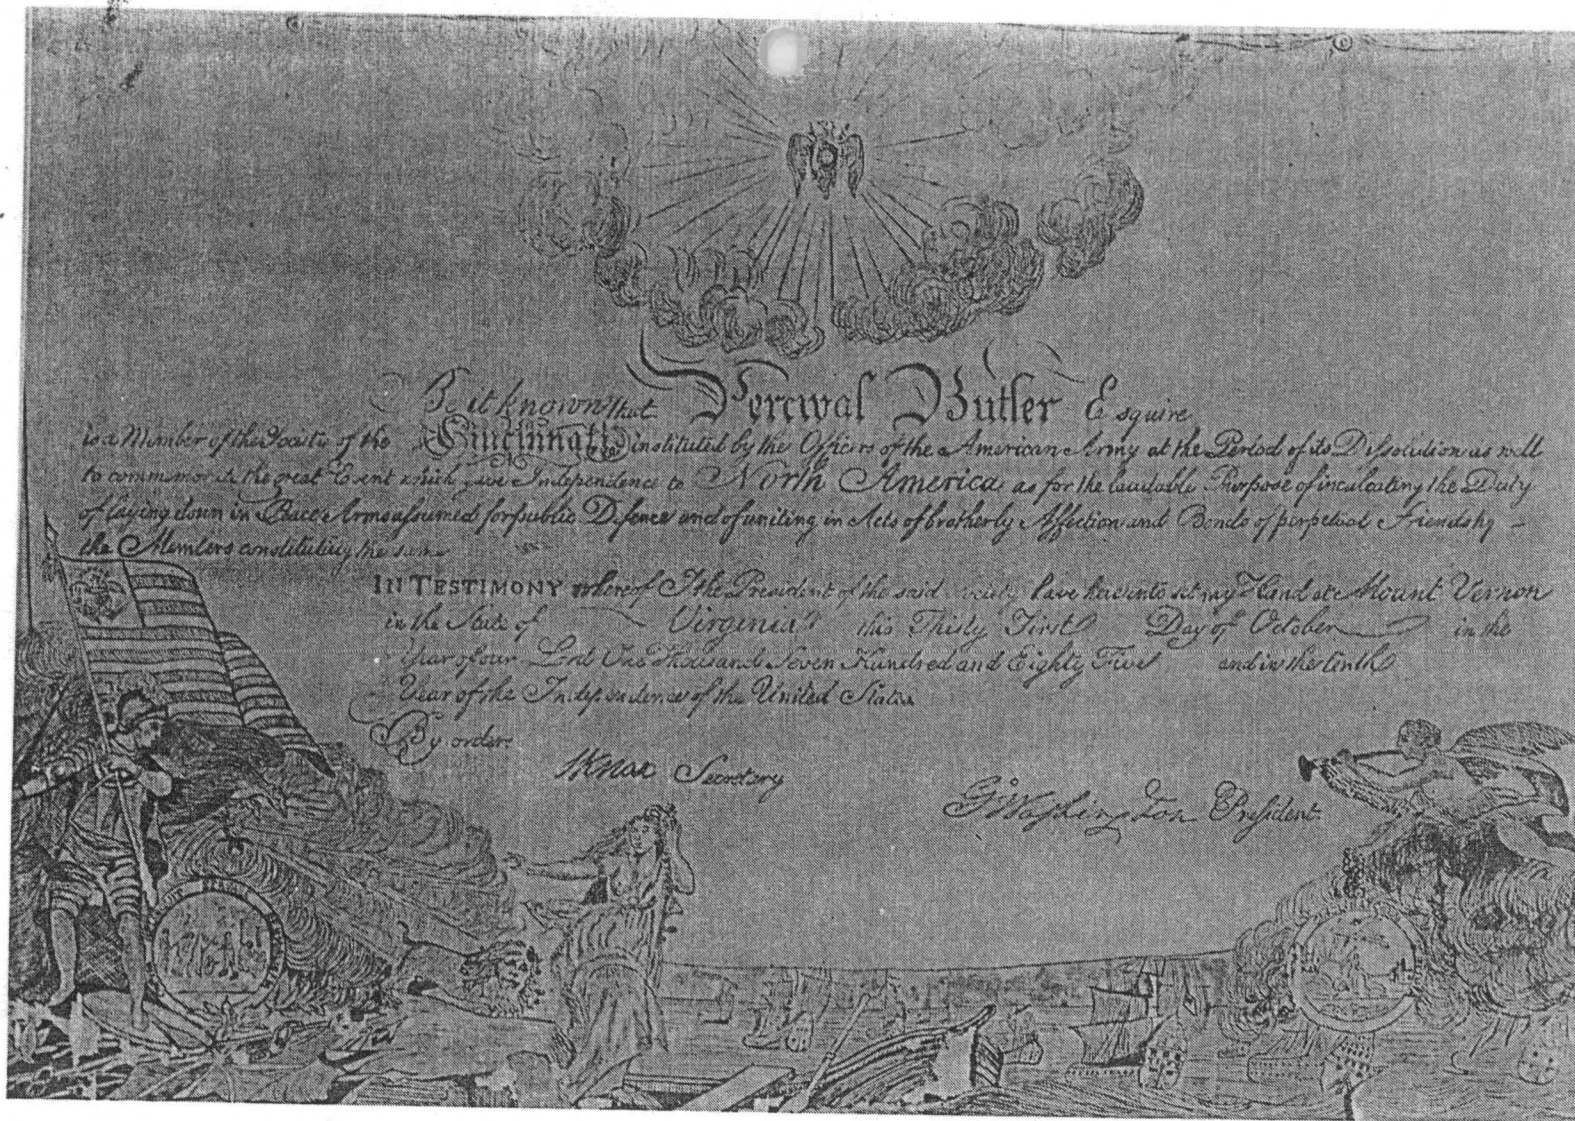 Be it known that Percival Butler Esquire
is a Member of the Society of the Cincinnati instituted by the Officers of the American Army at the Period of its Dissolution as well
to commemorate the great Event which gave Independence to North America as for the laudable Purpose of inculcating the Duty
of laying down in Peace Arms assumed for public Defence and of uniting in Acts of brotherly Affection and Bonds of perpetual Friendship
the Members constituting the same
IN TESTIMONY whereof I the President of the said Society have hereunto set my Hand at Mount Vernon
in the State of Virginia this Thirty First Day of October in the
Year of our Lord One Thousand Seven Hundred and Eighty Five and in the tenth
Year of the Independence of the United States
By order.
HKnox Secretary
Go Washington President.